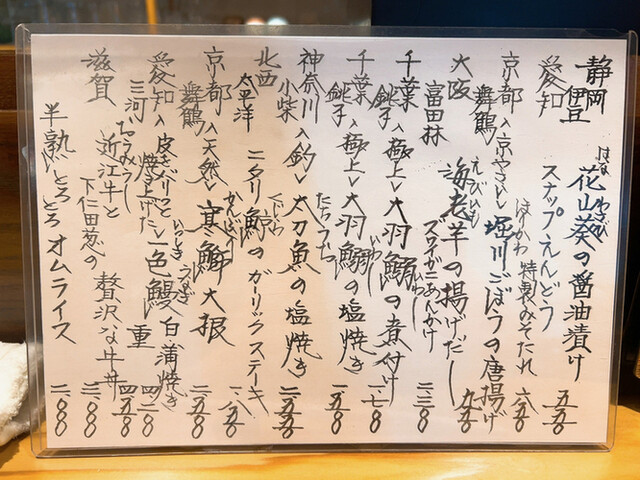 静岡 伊豆 花山葵の醤油漬け 五五〇
はなわさび
愛知 スナップえんどう 特製みそだれ 六五〇
京都 舞鶴 〈京やさい〉 堀川ごぼうの唐揚げ 九五〇
ほりかわ
大阪 富田林 海老芋の揚げだし ズワイガニあんかけ 二三〇〇
えびいも
千葉 銚子 〈極上〉 大羽鰯の煮付け 一七〇〇
いわし
千葉 銚子 〈極上〉 大羽鰯の塩焼き 一五〇〇
いわし
神奈川 小柴 〈釣〉 太刀魚の塩焼き 二五五〇
たちうお
北西 太平洋 ニタリ鯨のガーリックステーキ 一八五〇
くじら
京都 舞鶴 〈天然〉 寒鰤大根 二五〇〇
かんぶり
愛知 三河 〈皮パリッと 焼上げた〉 一色鰻 〈白蒲焼き 重
いっしき うなぎ
四二〇〇
四五〇〇
滋賀 近江牛と 下仁田葱の 贅沢な牛丼 三〇〇〇
おうみ
半熟とろとろオムライス 二〇〇〇